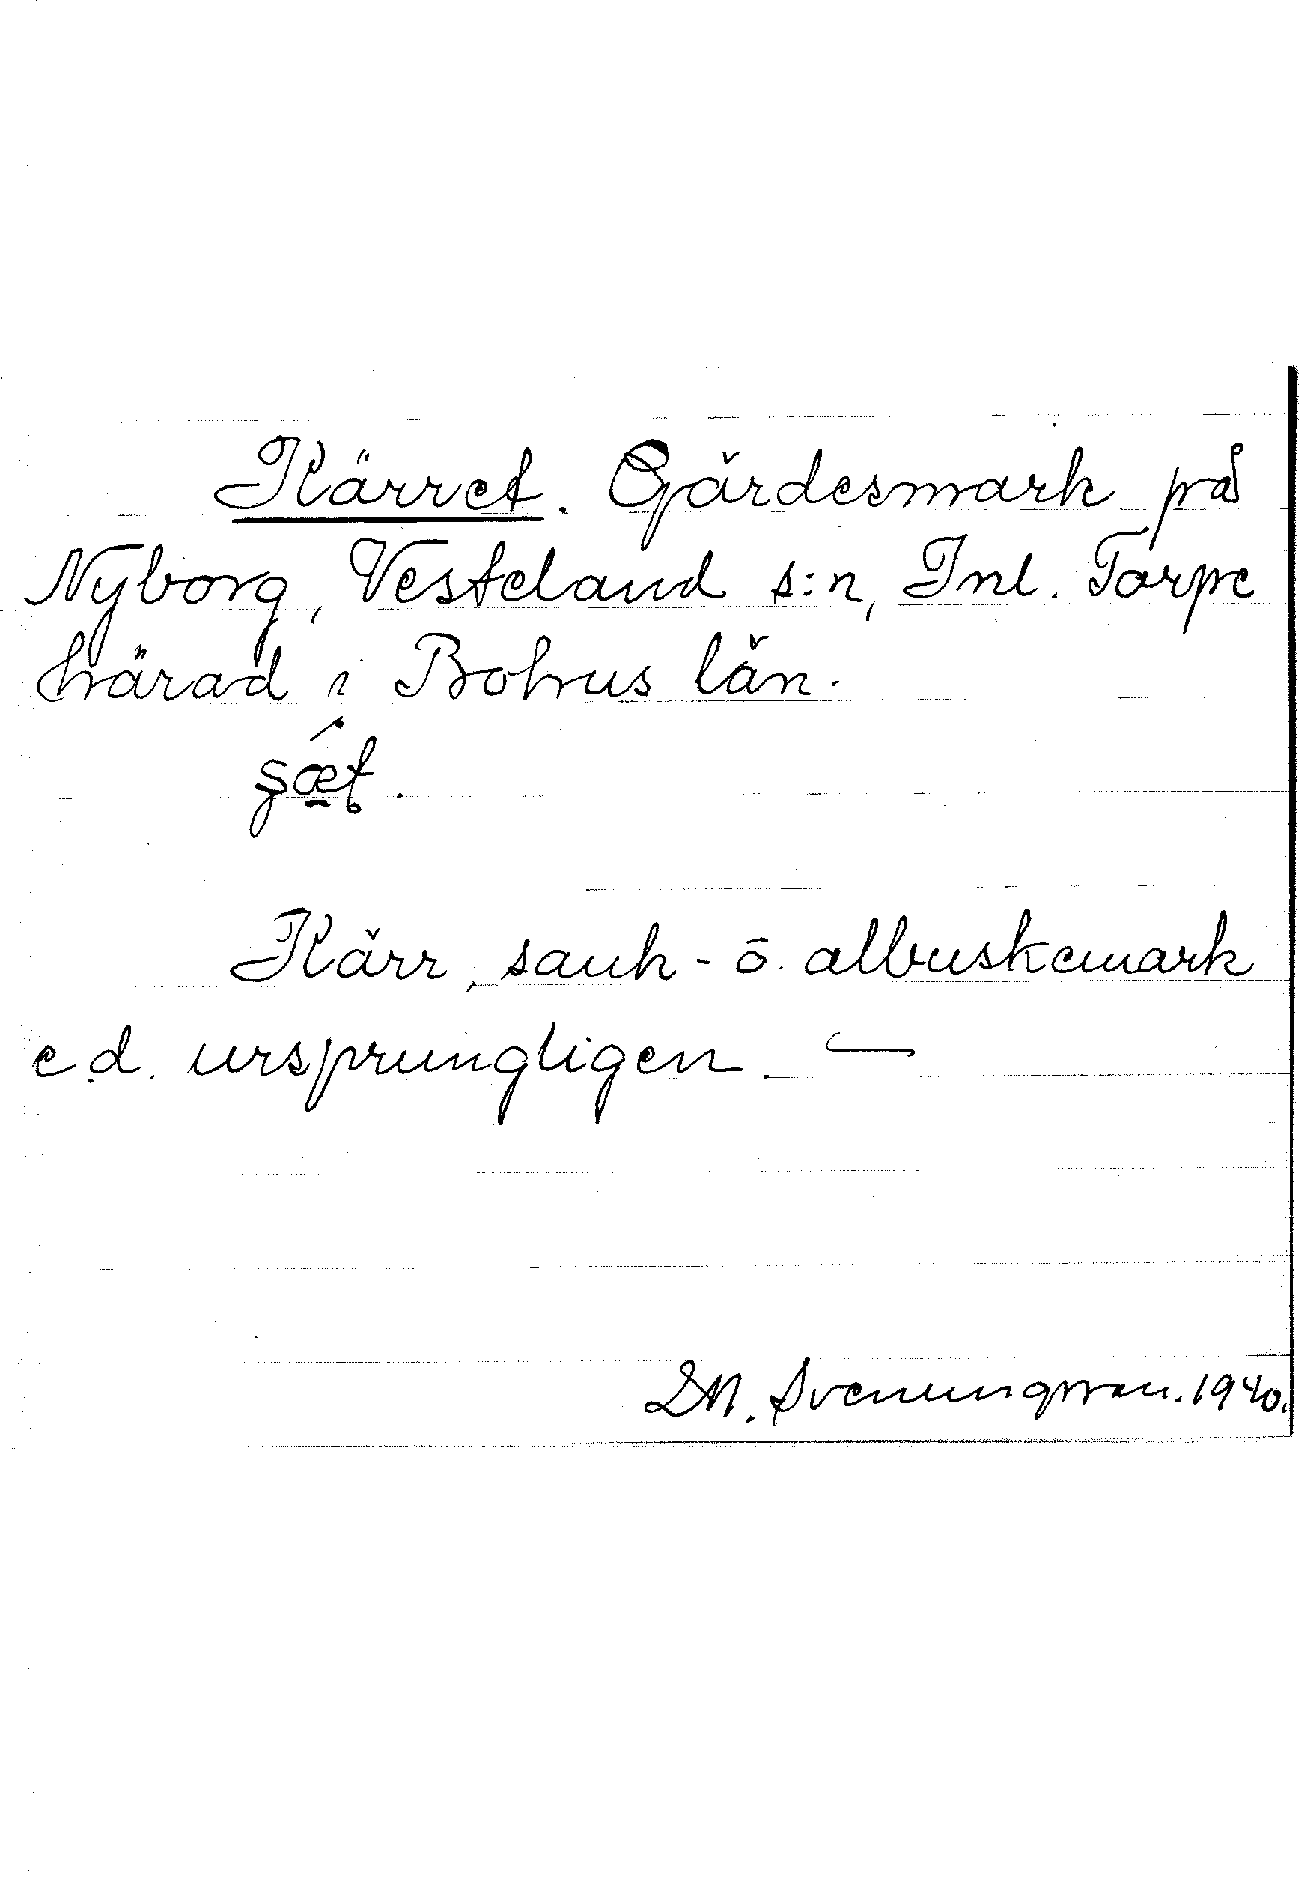 Kärret. Gärdesmark på
Nyborg, Vesteland s:n, Inl. Torpe
härad i Bohus län.
Kärr, sank- o. albuskemark
e.d. ursprungligen. —
Svenungsson. 1940.